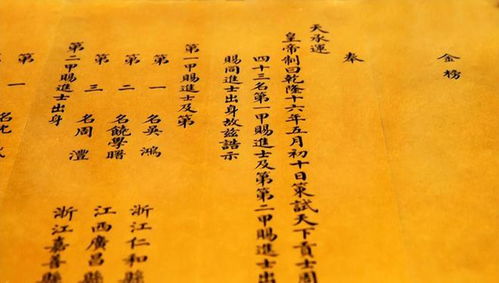 金榜
奉
天承運
皇帝制曰乾隆十六年五月初十日策試天下貢士周
四十三名第一甲賜進士及第第二甲賜進士出
賜同進士出身故茲誥示
第一甲賜進士及第
第一名吳鴻 浙江仁和縣
第二名饒學曙 江西廣昌縣
第三名周澧 浙江嘉善縣
第二甲賜進士出身
第一名沈